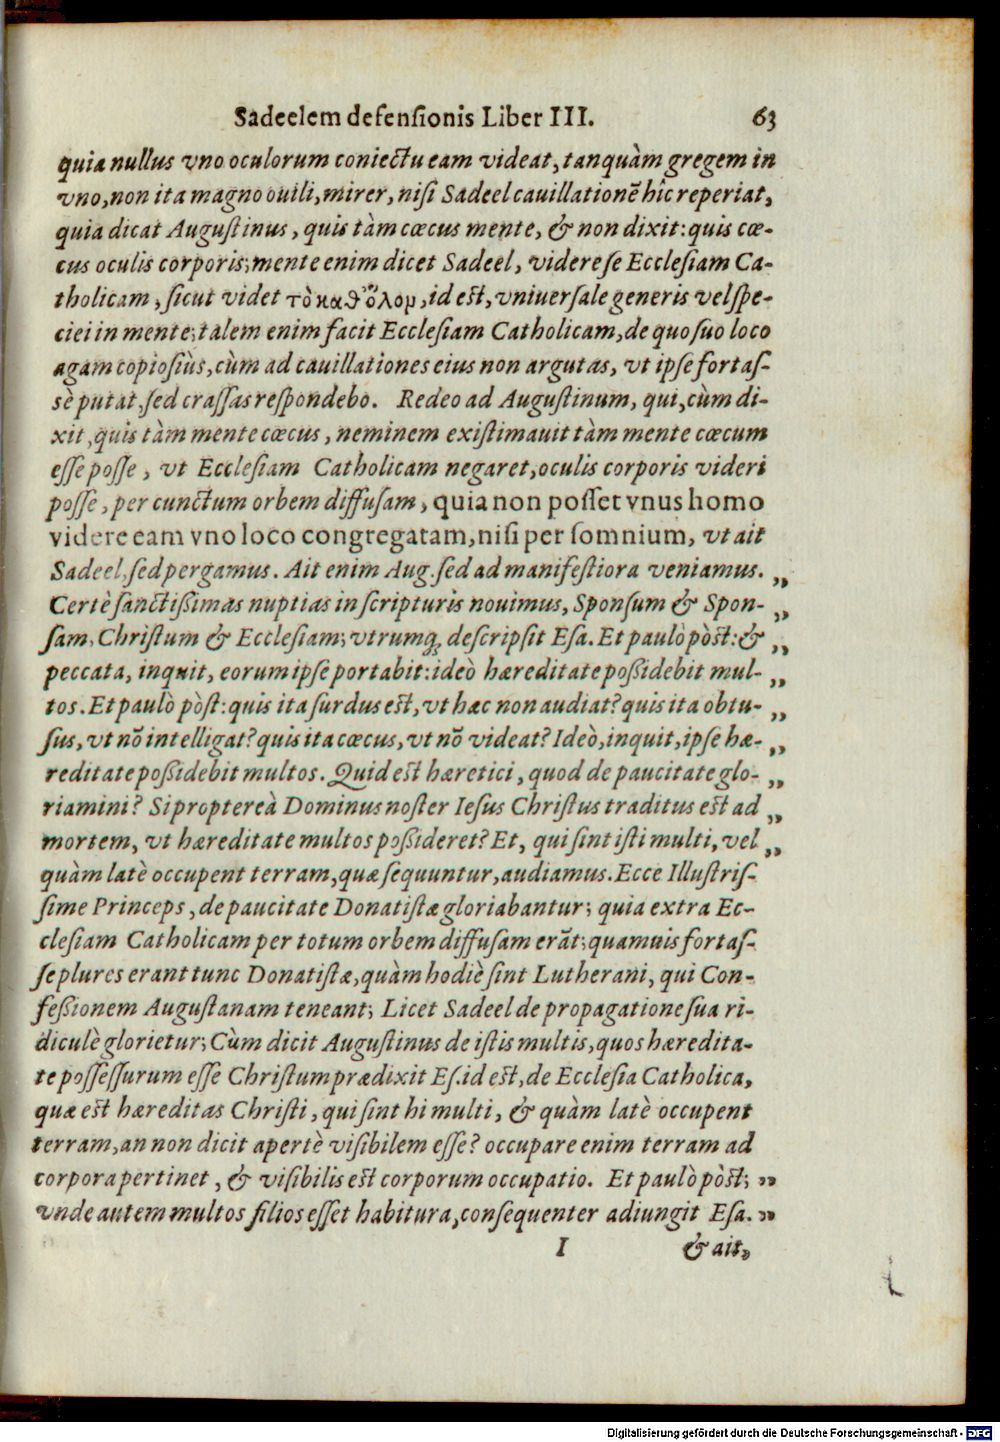 Sadeelem defensionis Liber III. 63
quia nullus vno oculorum coniectu eam videat, tanquàm gregem in
vno, non ita magno ouili, mirer, nisi Sadeel cauillationē hîc reperiat,
quia dicat Augustinus, quis tàm cœcus mente, & non dixit: quis cœ-
cus oculis corporis; mente enim dicet Sadeel, videre se Ecclesiam Ca-
tholicam, sicut videt τὸ καθ ὅλομ, id est, vniuersale generis vel spe-
ciei in mente; talem enim facit Ecclesiam Catholicam, de quo suo loco
agam copiosiùs, cùm ad cauillationes eius non argutas, vt ipse fortas-
sè putat, sed crassas respondebo. Redeo ad Augustinum, qui, cùm di-
xit, quis tàm mente cœcus, neminem existimauit tàm mente cœcum
esse posse, vt Ecclesiam Catholicam negaret, oculis corporis videri
posse, per cunctum orbem diffusam, quia non posset vnus homo
videre eam vno loco congregatam, nisi per somnium, vt ait
Sadeel, sed pergamus. Ait enim Aug. sed ad manifestiora veniamus. „
Certè sanctissimas nuptias in scripturis nouimus, Sponsum & Spon- „
sam, Christum & Ecclesiam; vtrumq; descripsit Esa. Et paulò pòst: & „
peccata, inquit, eorum ipse portabit: ideò hæreditate possidebit mul- „
tos. Et paulò pòst: quis ita surdus est, vt hæc non audiat? quis ita obtu- „
sus, vt nō intelligat? quis ita cœcus, vt nō videat? Ideò, inquit, ipse hæ- „
reditate possidebit multos. Quid est hæretici, quod de paucitate glo- „
riamini? Si proptereà Dominus noster Iesus Christus traditus est ad „
mortem, vt hæreditate multos possideret? Et, qui sint isti multi, vel „
quàm latè occupent terram, quæ sequuntur, audiamus. Ecce Illustris-
sime Princeps, de paucitate Donatistæ gloriabantur; quia extra Ec-
clesiam Catholicam per totum orbem diffusam erāt; quamuis fortas-
se plures erant tunc Donatistæ, quàm hodiè sint Lutherani, qui Con-
fessionem Augustanam teneant; Licet Sadeel de propagatione sua ri-
diculè glorietur; Cùm dicit Augustinus de istis multis, quos hæredita-
te possessurum esse Christum prædixit Es. id est, de Ecclesia Catholica,
quæ est hæreditas Christi, qui sint hi multi, & quàm latè occupent
terram, an non dicit apertè visibilem esse? occupare enim terram ad
corpora pertinet, & visibilis est corporum occupatio. Et paulò pòst; „
vnde autem multos filios esset habitura, consequenter adiungit Esa. „
I & ait,
Digitalisierung gefördert durch die Deutsche Forschungsgemeinschaft - DFG